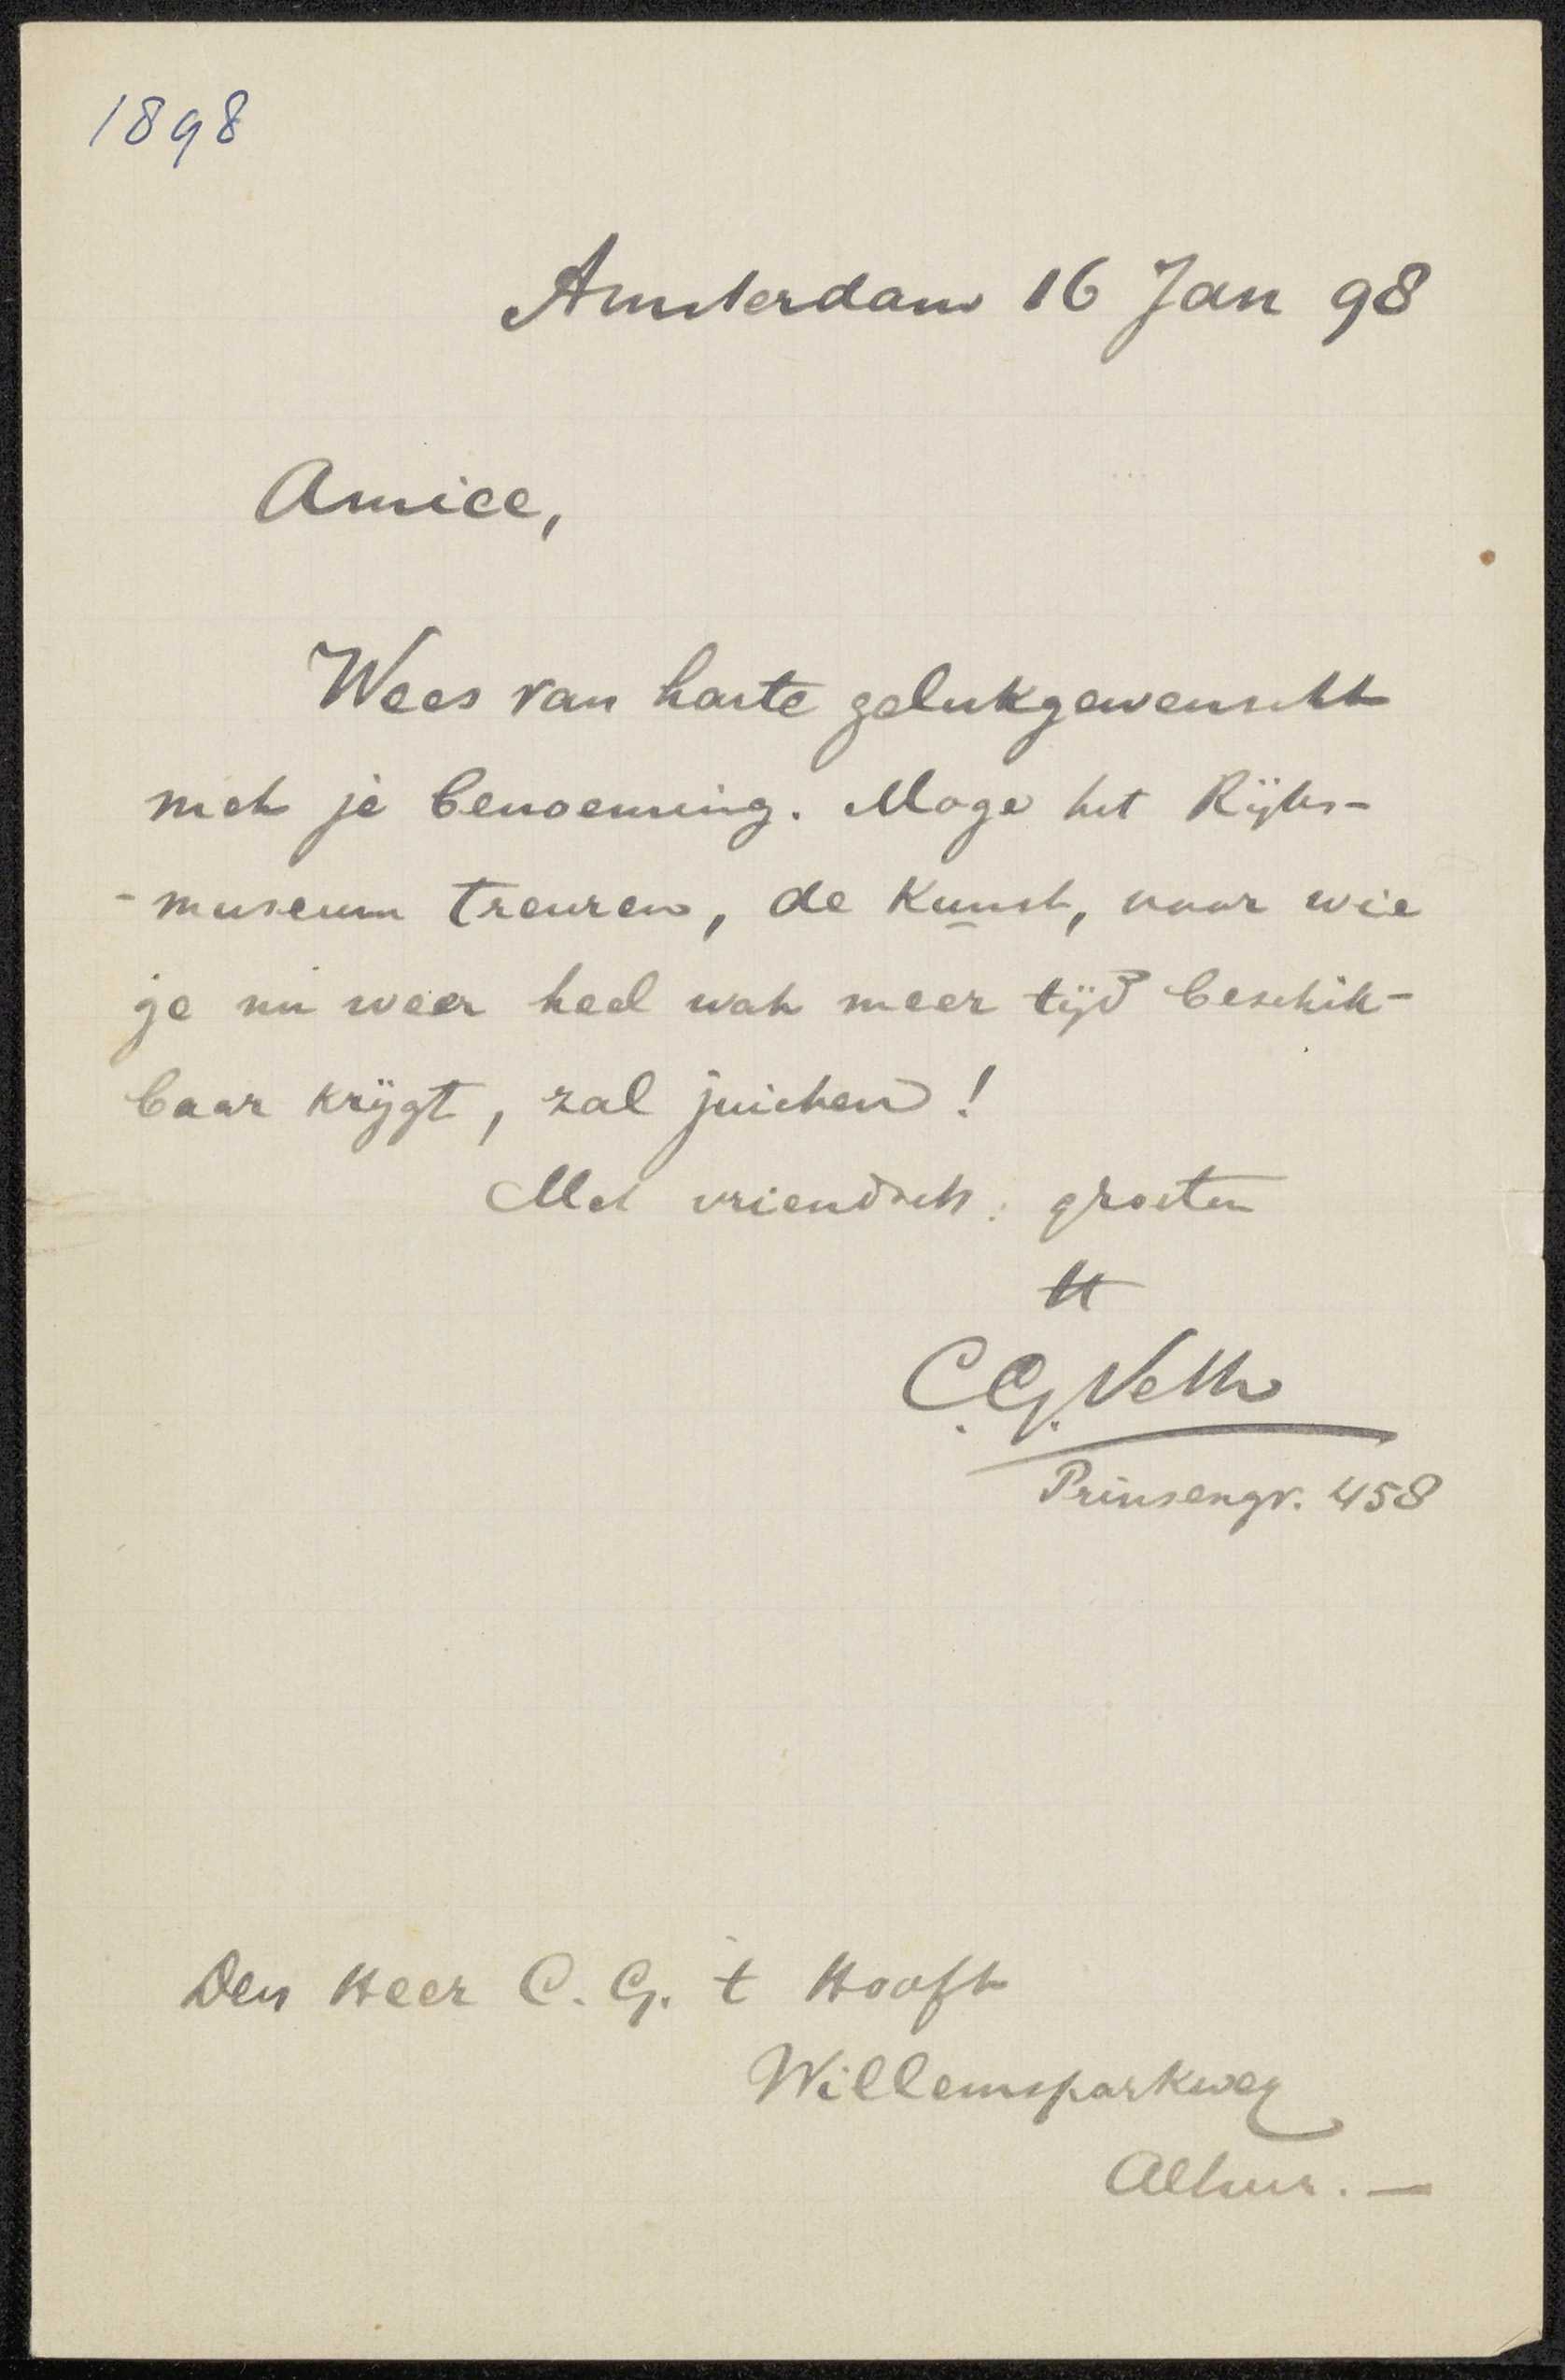 1898
Amsterdam 16 Jan 98
Amice,
Wees van harte gelukgewenscht
met je benoeming. Moge het Rijks-
-museum treuren, de Kunst, voor wie
je nu weer heel wat meer tijd beschik-
baar krijgt, zal juichen!
Met vriendsch. groeten
tt
C.G. Veth
Prinsengr. 458
Den Heer C. G. 't Hooft
Willemsparkweg
Alhier. —